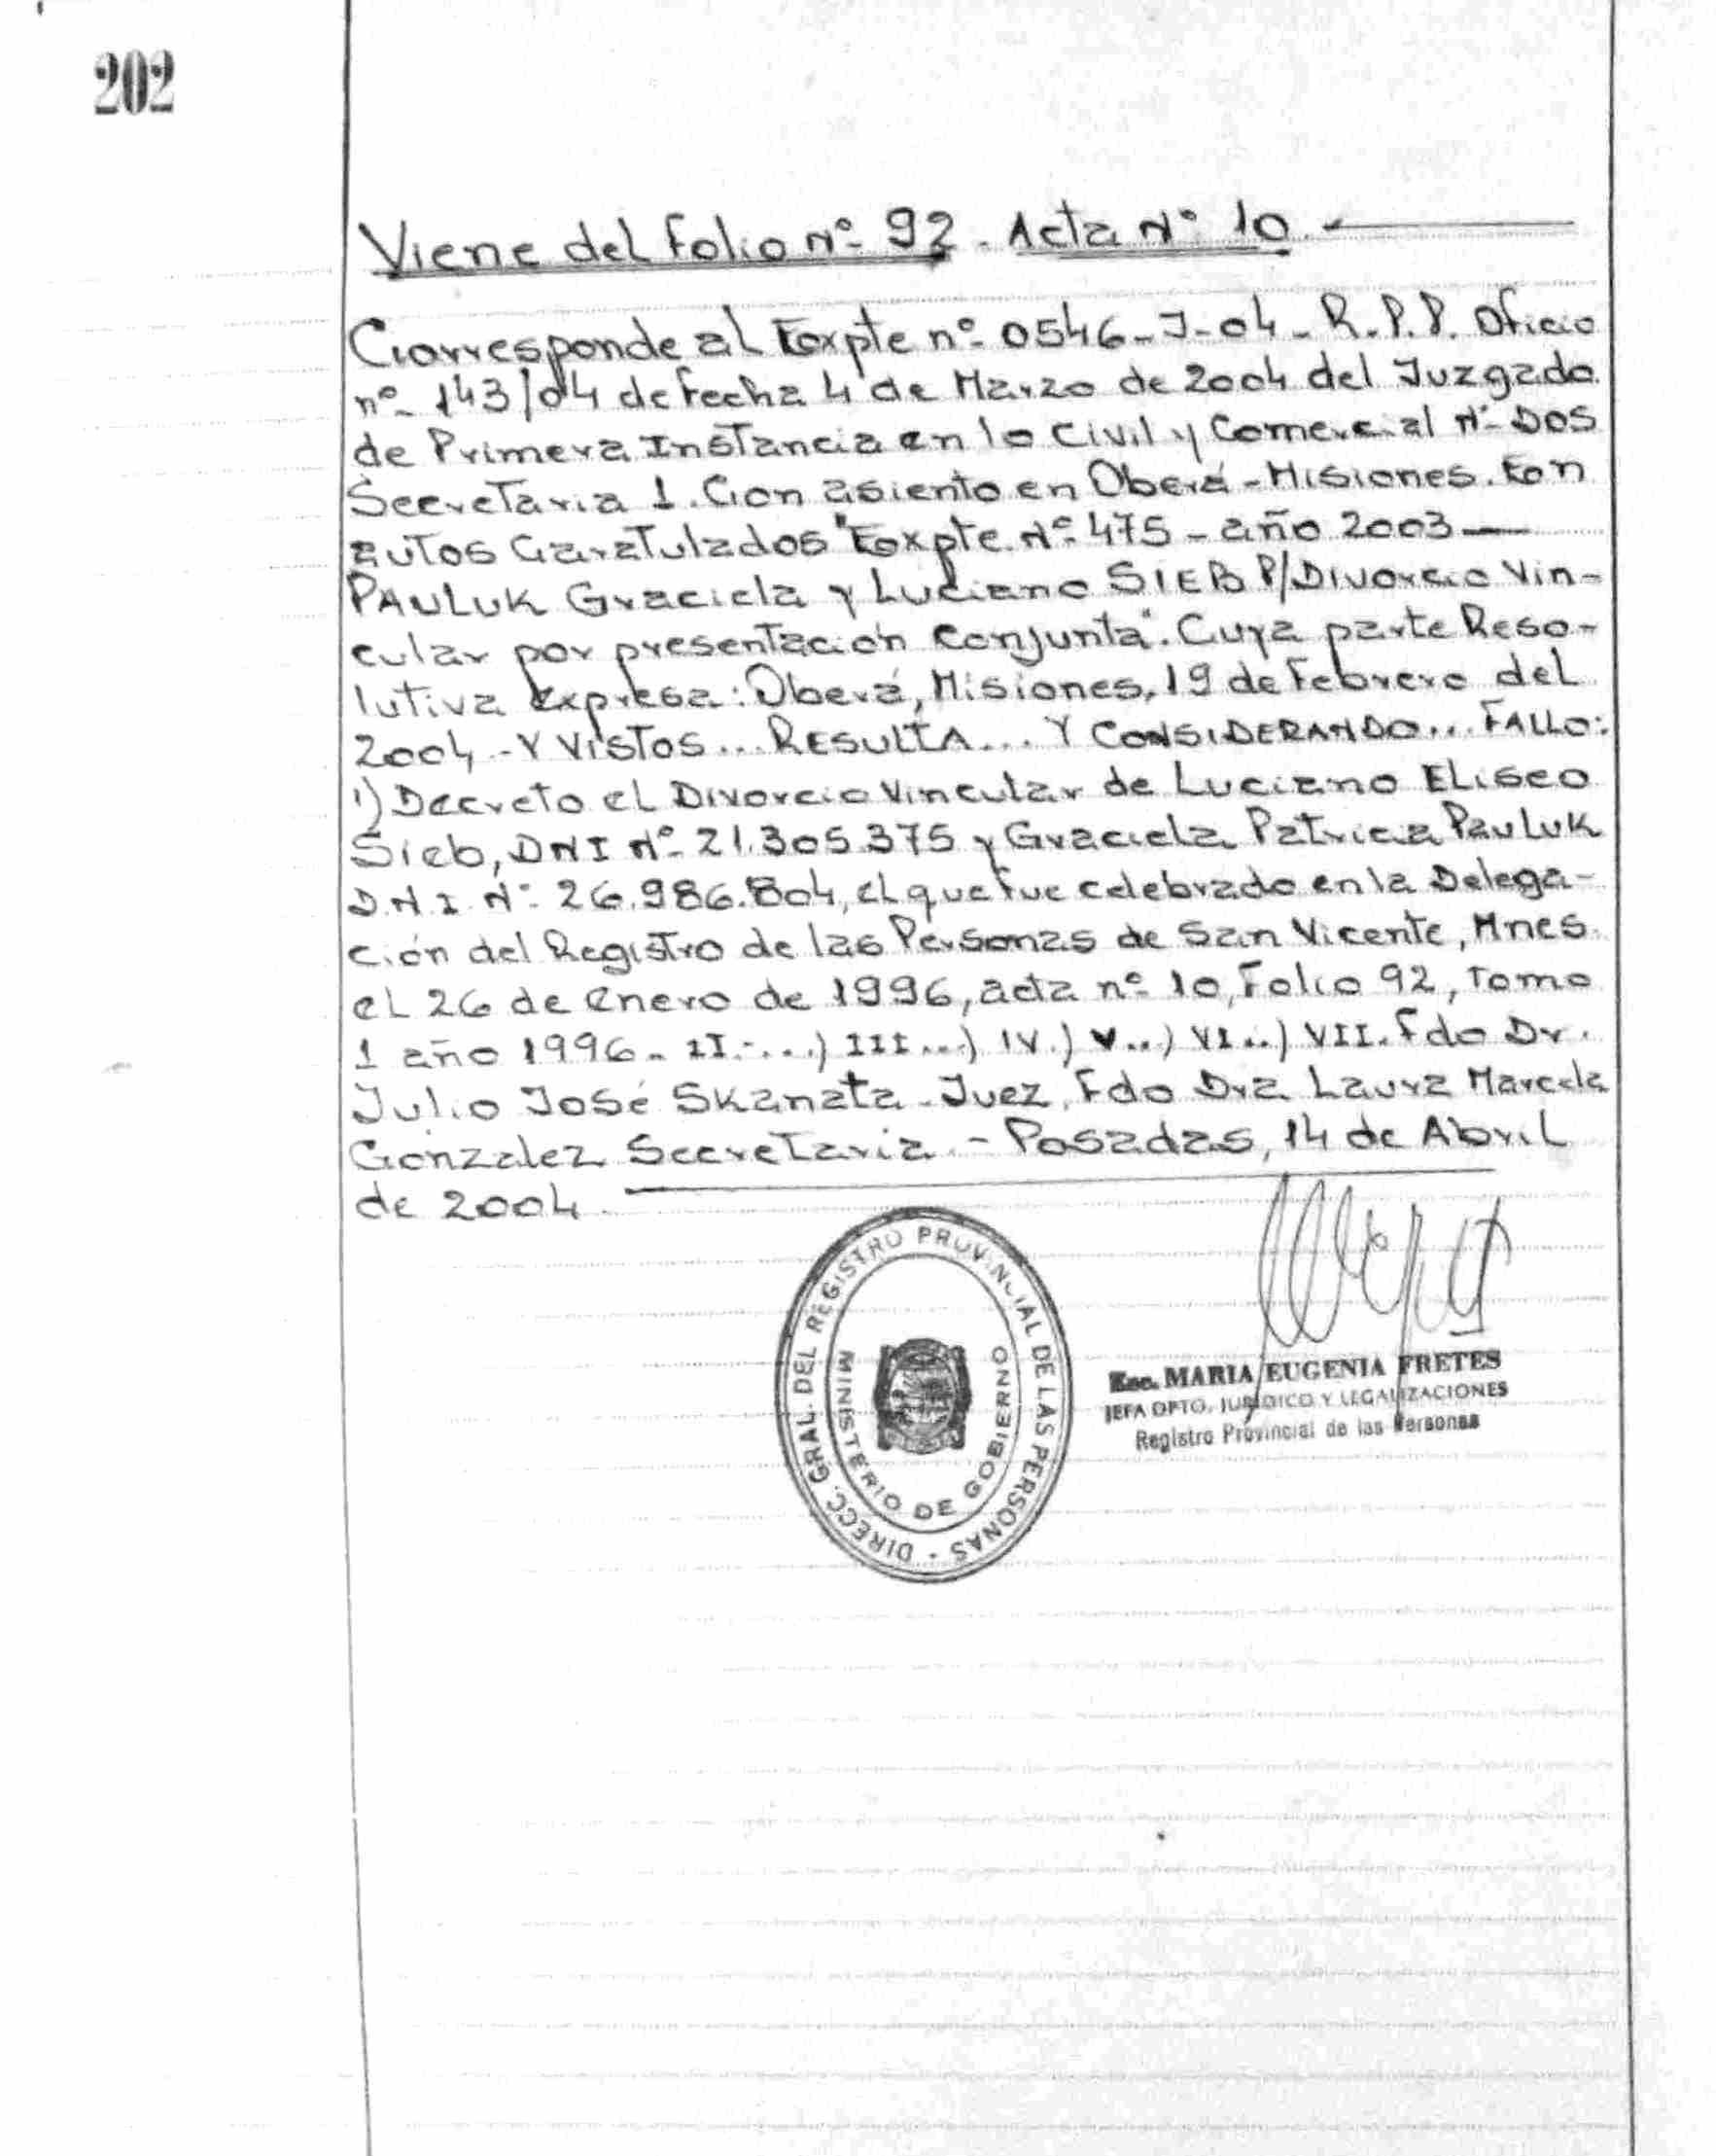 202
Viene del folio nº 92 - Acta Nº 10.
Corresponde al Expte nº 0546-J-04- R.P.P. Oficio
nº 143/04 de fecha 4 de Marzo de 2004 del Juzgado
de Primera Instancia en lo Civil y Comercial Nº DOS
Secretaria 1. Con asiento en Oberá - Misiones. En
autos Caratulados "Expte. Nº 475 - año 2003 —
PAULUK Graciela y Luciano SIEB P/Divorcio Vin-
cular por presentación Conjunta". Cuya parte Reso-
lutiva Expresa: Oberá, Misiones, 19 de Febrero del
2004 - Y VISTOS... RESULTA... Y CONSIDERANDO... FALLO:
1) Decreto el Divorcio Vincular de Luciano Eliseo
Sieb, DNI Nº 21.305.375 y Graciela Patricia Pauluk
D.N.I. Nº 26.986.804, el que fue celebrado en la Delega-
ción del Registro de las Personas de San Vicente, Mnes.
el 26 de Enero de 1996, acta nº 10, Folio 92, Tomo
1 año 1996 - II-...) III...) IV.) V...) VI...) VII. Fdo Dr.
Julio José Skanata - Juez, Fdo Dra Laura Marcela
Gonzalez Secretaria. - Posadas, 14 de Abril
de 2004.
DIRECC. GRAL. DEL REGISTRO PROVINCIAL DE LAS PERSONAS -
MINISTERIO DE GOBIERNO
Esc. MARIA EUGENIA FRETES
JEFA DPTO. JURIDICO Y LEGALIZACIONES
Registro Provincial de las Personas